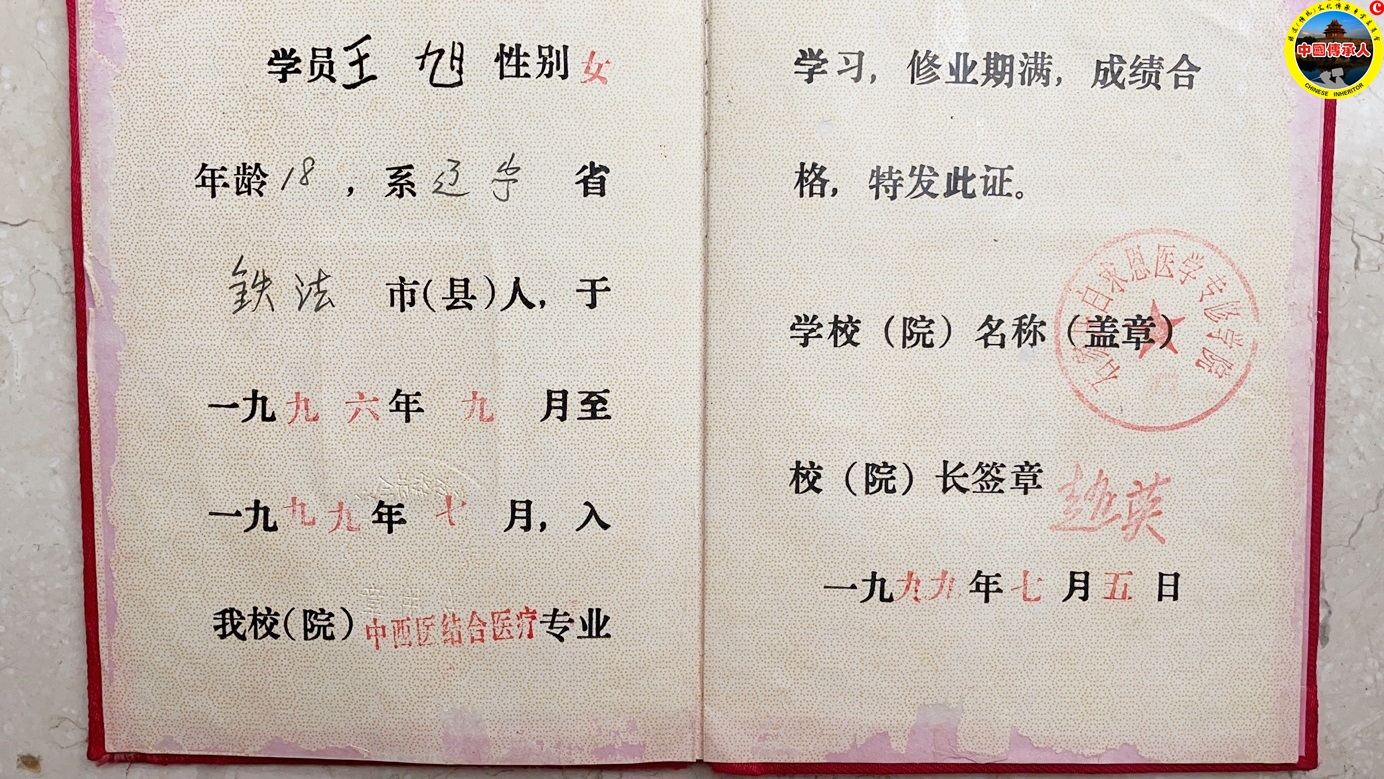 学员王旭性别女
年龄18，系辽宁省
铁法市(县)人，于
一九九六年九月至
一九九九年七月，入
我校(院)中西医结合医疗专业
学习，修业期满，成绩合
格，特发此证。
学校（院）名称（盖章）
白求恩医学专修学院
校（院）长签章
一九九九年七月五日
中國傳承人
CHINESE INHERITOR
C